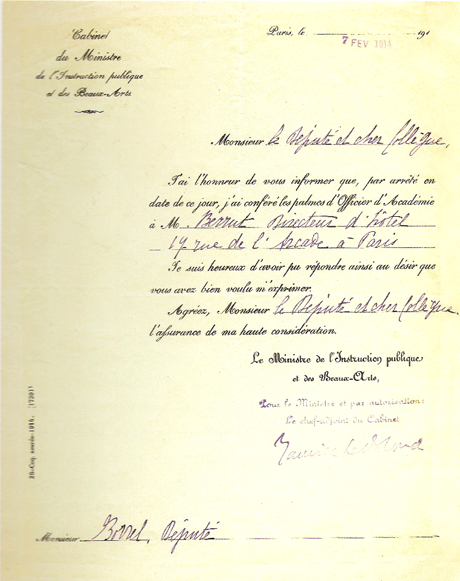 Cabinet
du Ministre
de l'Instruction publique
et des Beaux-Arts
Paris, le 7 FEV 1914 191
Monsieur le Député et cher Collègue,
J'ai l'honneur de vous informer que, par arrêté en
date de ce jour, j'ai conféré les palmes d'Officier d'Académie
à M. Directeur d'Hôtel
rue de l'Arcade à Paris
Je suis heureux d'avoir pu répondre ainsi au désir que
vous avez bien voulu m'exprimer.
Agréez, Monsieur le Député et cher Collègue,
l'assurance de ma haute considération.
Le Ministre de l'Instruction publique
et des Beaux-Arts,
Pour le Ministre et par autorisation:
Le chef-adjoint du Cabinet
Monsieur Borrel, Député